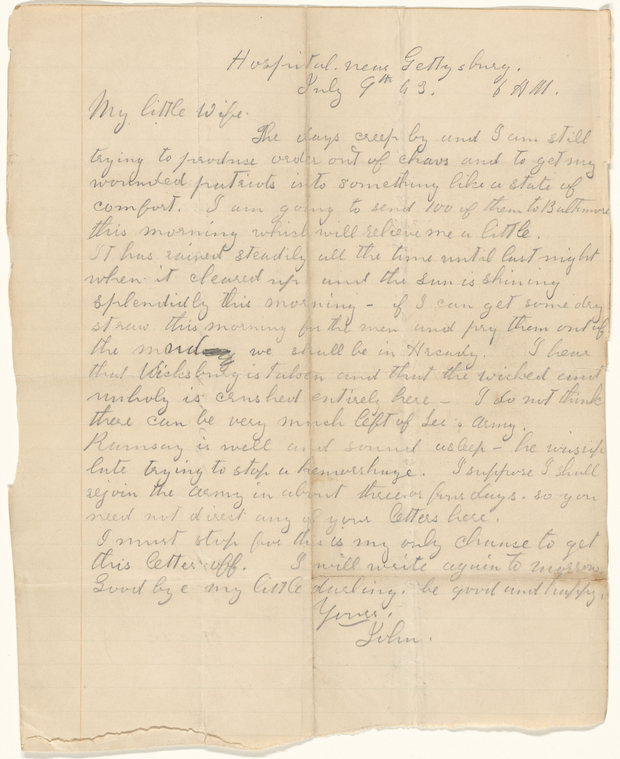 Hospital near Gettysburg.
July 9th 63. 6 AM.
My little Wife.
The days creep by and I am still
trying to produse order out of chaos and to get my
wounded patriots into something like a state of
comfort. I am going to send 100 of them to Baltimore
this morning which will relieve me a little.
It has rained steadily all the time until last night
when it cleared up and the sun is shining
splendidly this morning – if I can get some dry
straw this morning for the men and pry them out of
the mud we shall be in Arcady. I hear
that Vicksburg is taken and that the wicked and
unholy is crushed entirely here – I do not think
there can be very much left of Lee's army.
Ramsay is well and sound asleep – he was up
late trying to stop a hemorrhage. I suppose I shall
rejoin the army in about three or four days. so you
need not direct any of your letters here.
I must stop for this is my only chance to get
this letter off. I will write again to morrow
Good bye my little darling. be good and happy.
Yours.
John.